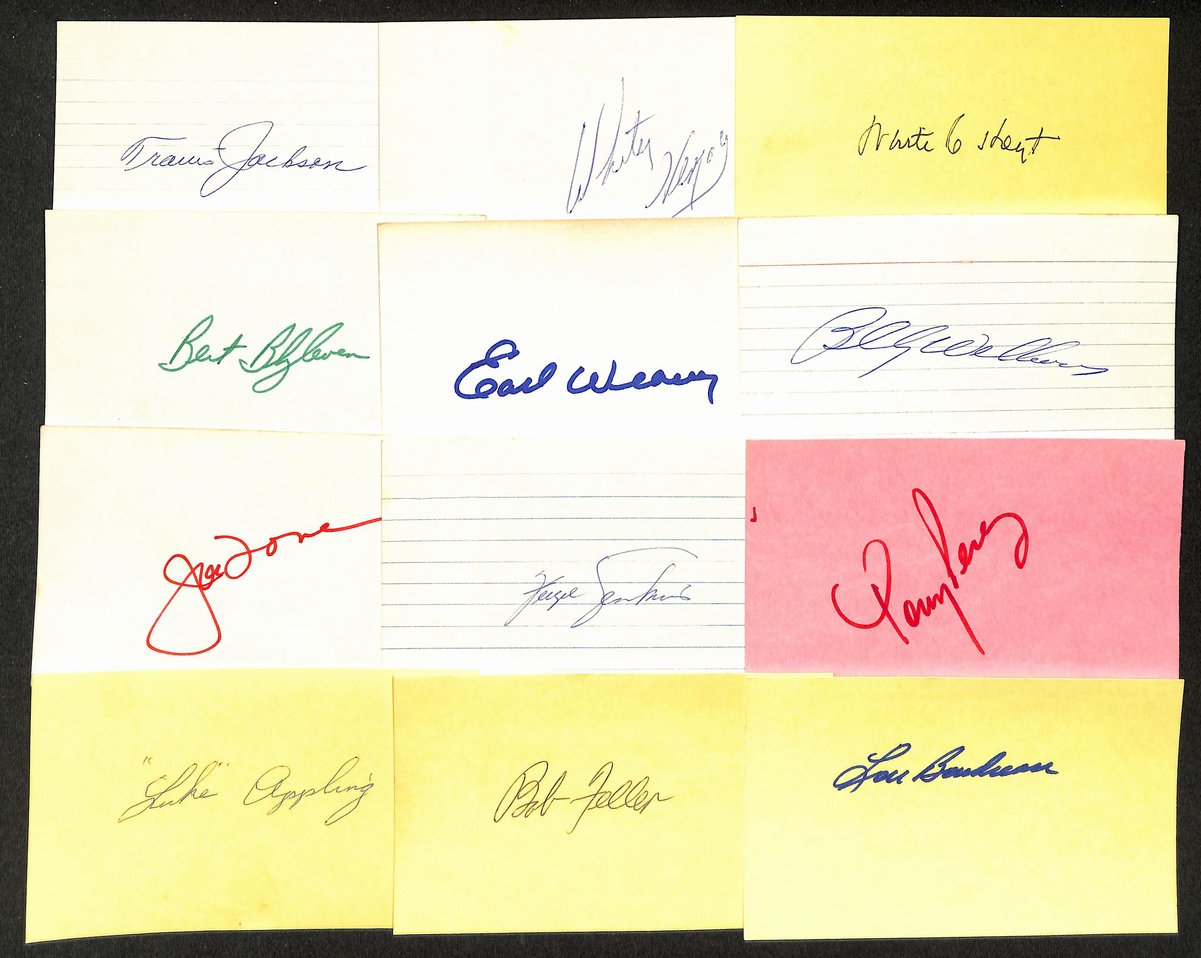 Travis Jackson
Whitey Herzog
Waite C Hoyt
Bert Blyleven
Earl Weaver
Billy Williams
Joe Torre
Fergie Jenkins
Tony Perez
"Luke" Appling
Bob Feller
Lou Boudreau